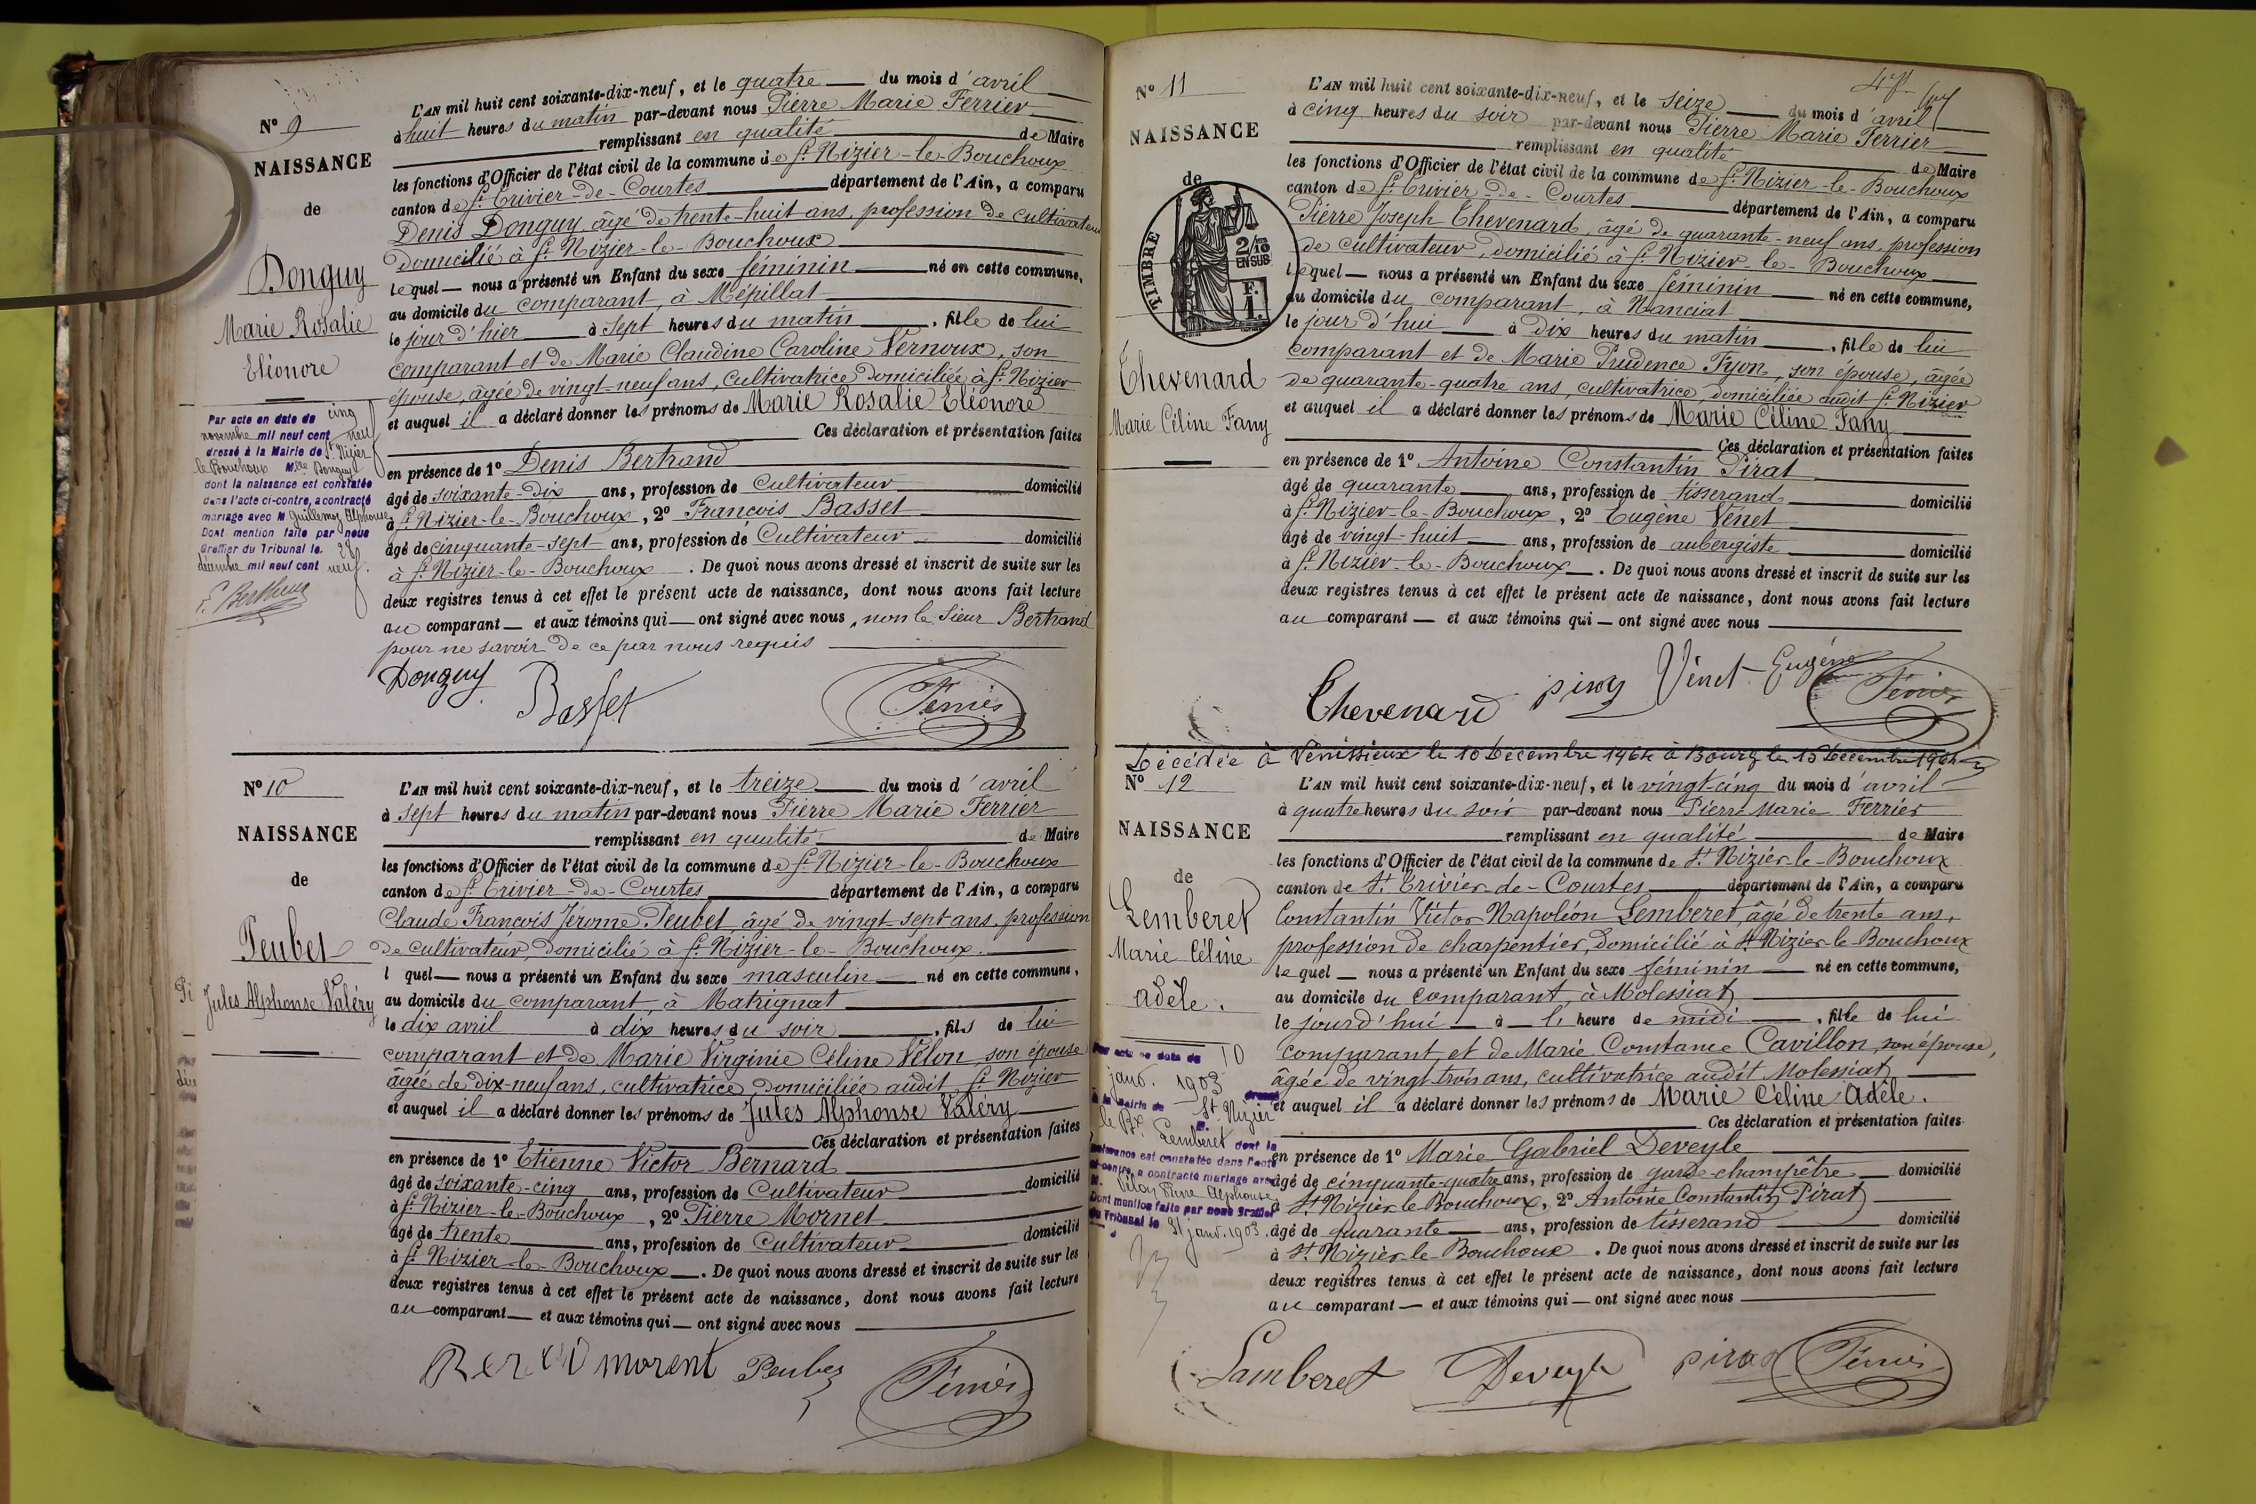 N° 9
NAISSANCE
de
Donguy
Marie Rosalie
Eléonore
Par acte en date du cinq
novembre mil neuf cent neuf
dressé à la Mairie de St Nizier
le Bouchoux Mlle Donguy
dont la naissance est constatée
dans l'acte ci-contre, a contracté
mariage avec M Guillemoz Alphonse
Dont mention faite par nous
Greffier du Tribunal le
décembre mil neuf cent neuf.
L'AN mil huit cent soixante-dix-neuf, et le quatre du mois d'avril
à huit heures du matin par-devant nous Pierre Marie Ferrier
remplissant en qualité de Maire
les fonctions d'Officier de l'état civil de la commune de St Nizier-le-Bouchoux
canton de St Trivier-de-Courtes département de l'Ain, a comparu
Denis Donguy, âgé de trente-huit ans, profession de cultivateur
domicilié à St Nizier-le-Bouchoux
lequel nous a présenté un Enfant du sexe féminin né en cette commune,
au domicile du comparant, à Mépillat
le jour d'hier à sept heures du matin, fille de lui
comparant et de Marie Claudine Caroline Vernoux, son
épouse, âgée de vingt-neuf ans, cultivatrice domiciliée à St Nizier
et auquel il a déclaré donner les prénoms de Marie Rosalie Eléonore
Ces déclaration et présentation faites
en présence de 1° Denis Bertrand
âgé de soixante-dix ans, profession de Cultivateur domicilié
à St Nizier-le-Bouchoux, 2° François Basset
âgé de cinquante-sept ans, profession de Cultivateur domicilié
à St Nizier-le-Bouchoux. De quoi nous avons dressé et inscrit de suite sur les
deux registres tenus à cet effet le présent acte de naissance, dont nous avons fait lecture
au comparant et aux témoins qui ont signé avec nous, non le Sieur Bertrand
pour ne savoir de ce par nous requis
Donguy Basset Ferrier
N° 10
NAISSANCE
de
Peubet
Jules Alphonse Valéry
L'AN mil huit cent soixante-dix-neuf, et le treize du mois d'avril
à sept heures du matin par-devant nous Pierre Marie Ferrier
remplissant en qualité de Maire
les fonctions d'Officier de l'état civil de la commune de St Nizier-le-Bouchoux
canton de St Trivier-de-Courtes département de l'Ain, a comparu
Claude François Jérome Peubet, âgé de vingt-sept ans, profession
de cultivateur, domicilié à St Nizier-le-Bouchoux.
l quel nous a présenté un Enfant du sexe masculin né en cette commune,
au domicile du comparant, à Matrignat
le dix avril à dix heures du soir, fils de lui
comparant et de Marie Virginie Céline Vélon, son épouse
âgée de dix-neuf ans, cultivatrice domiciliée audit St Nizier
et auquel il a déclaré donner les prénoms de Jules Alphonse Valéry
Ces déclaration et présentation faites
en présence de 1° Etienne Victor Bernard
âgé de soixante-cinq ans, profession de Cultivateur domicilié
à St Nizier-le-Bouchoux, 2° Pierre Mornet
âgé de trente ans, profession de Cultivateur domicilié
à St Nizier-le-Bouchoux. De quoi nous avons dressé et inscrit de suite sur les
deux registres tenus à cet effet le présent acte de naissance, dont nous avons fait lecture
au comparant et aux témoins qui ont signé avec nous
morent Peubet Ferrier
N° 11
NAISSANCE
de
TIMBRE
2/10
EN SUS
F.
1.
Thevenard
Marie Céline Fany
L'AN mil huit cent soixante-dix-neuf, et le seize du mois d'avril
à cinq heures du soir par-devant nous Pierre Marie Ferrier
remplissant en qualité de Maire
les fonctions d'Officier de l'état civil de la commune de St Nizier-le-Bouchoux
canton de St Trivier-de-Courtes département de l'Ain, a comparu
Pierre Joseph Thevenard, âgé de quarante-neuf ans, profession
de cultivateur, domicilié à St Nizier-le-Bouchoux
lequel nous a présenté un Enfant du sexe féminin né en cette commune,
au domicile du comparant, à Nanciat
le jour d'hui à dix heures du matin, fille de lui
comparant et de Marie Prudence Fyon, son épouse, âgée
de quarante-quatre ans, cultivatrice, domiciliée audit St Nizier
et auquel il a déclaré donner les prénoms de Marie Céline Fany
Ces déclaration et présentation faites
en présence de 1° Antoine Constantin Pirat
âgé de quarante ans, profession de tisserand domicilié
à St Nizier-le-Bouchoux, 2° Eugène Vénet
âgé de vingt-huit ans, profession de aubergiste domicilié
à St Nizier-le-Bouchoux. De quoi nous avons dressé et inscrit de suite sur les
deux registres tenus à cet effet le présent acte de naissance, dont nous avons fait lecture
au comparant et aux témoins qui ont signé avec nous
Thevenard pirat Vénet Eugène Ferrier
Décédée à Vénissieux le 10 Décembre 1964 à Bourg le 15 Décembre 1964
N° 12
NAISSANCE
de
Lemberet
Marie Céline
Adèle.
Par acte en date du 10
janv. 1903 dressé
à la Mairie de St Nizier
le Bx M. Lemberet dont la
naissance est constatée dans l'acte
ci-contre, a contracté mariage avec
M. Vélon Pierre Alphonse
Dont mention faite par nous Greffier
du Tribunal le 31 janv. 1903.
L'AN mil huit cent soixante-dix-neuf, et le vingt-cinq du mois d'avril
à quatre heures du soir par-devant nous Pierre Marie Ferrier
remplissant en qualité de Maire
les fonctions d'Officier de l'état civil de la commune de St Nizier-le-Bouchoux
canton de St Trivier-de-Courtes département de l'Ain, a comparu
Constantin Victor Napoléon Lemberet, âgé de trente ans,
profession de charpentier, domicilié à St Nizier-le-Bouchoux
lequel nous a présenté un Enfant du sexe féminin né en cette commune,
au domicile du comparant, à Molessiat
le jourd'hui à l' heure de midi, fille de lui
comparant, et de Marie Constance Cavillon, son épouse,
âgée de vingt-trois ans, cultivatrice audit Molessiat
et auquel il a déclaré donner les prénoms de Marie Céline Adèle.
Ces déclaration et présentation faites
en présence de 1° Marie Gabriel Deveyle
âgé de cinquante-quatre ans, profession de garde-champêtre domicilié
à St Nizier le Bouchoux, 2° Antoine Constantin Pirat
âgé de quarante ans, profession de tisserand domicilié
à St Nizier-le Bouchoux. De quoi nous avons dressé et inscrit de suite sur les
deux registres tenus à cet effet le présent acte de naissance, dont nous avons fait lecture
au comparant et aux témoins qui ont signé avec nous
Lamberet Deveyle pirat Ferrier